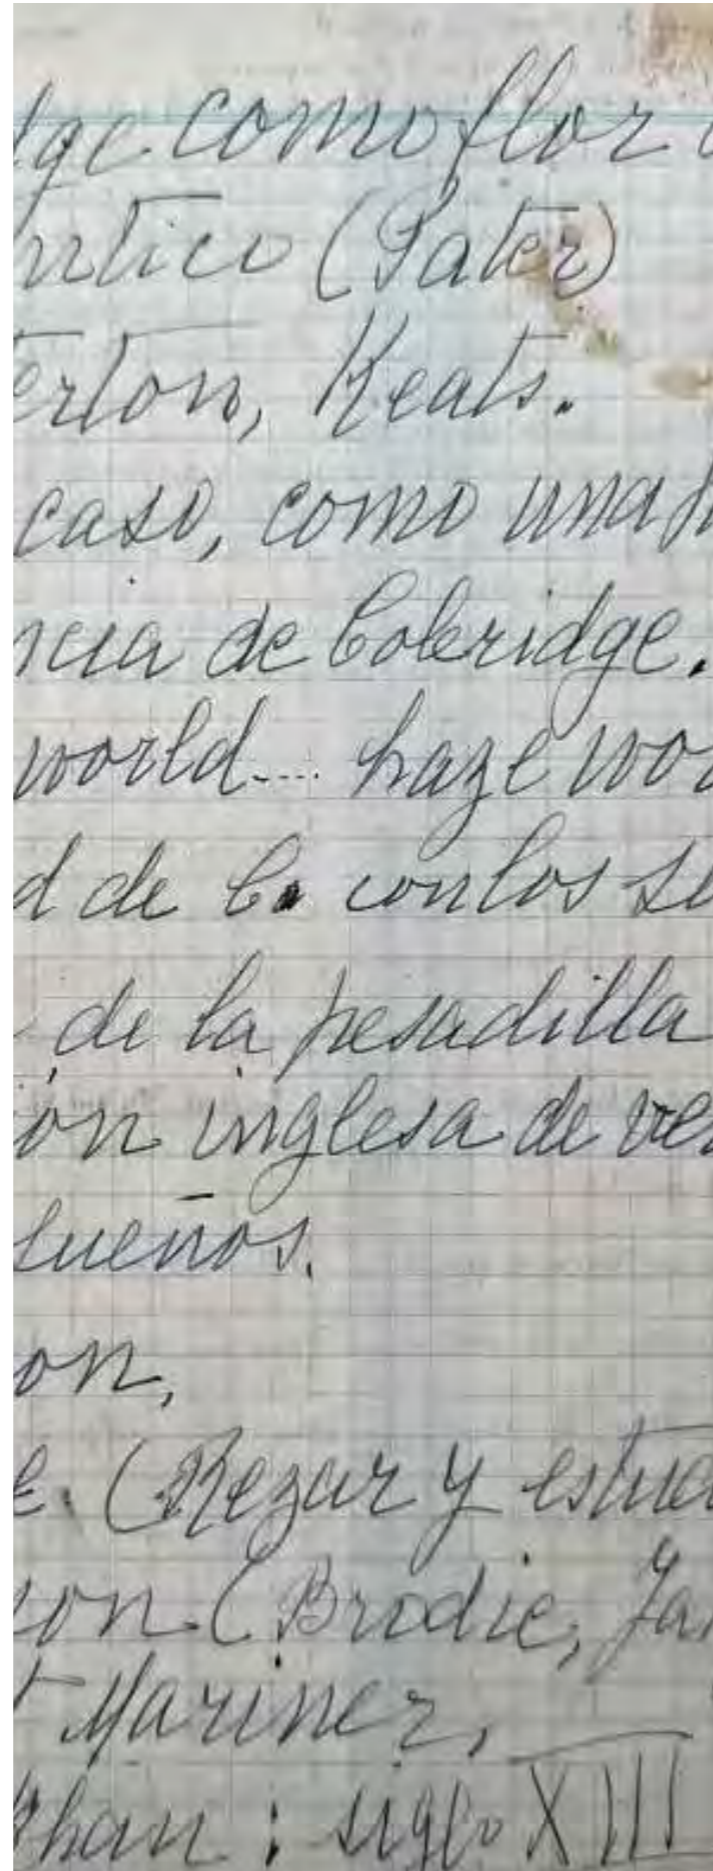 dge como flor
ntico (Pater)
erton, Keats.
caso, como una
ncia de Coleridge.
world.... haze wor
d de C. con los se
de la pesadilla
ón inglesa de ver
sueños.
on,
e. (Rezar y estud
son (Brodie, Ja
t Mariner,
Khan: siglo XIII